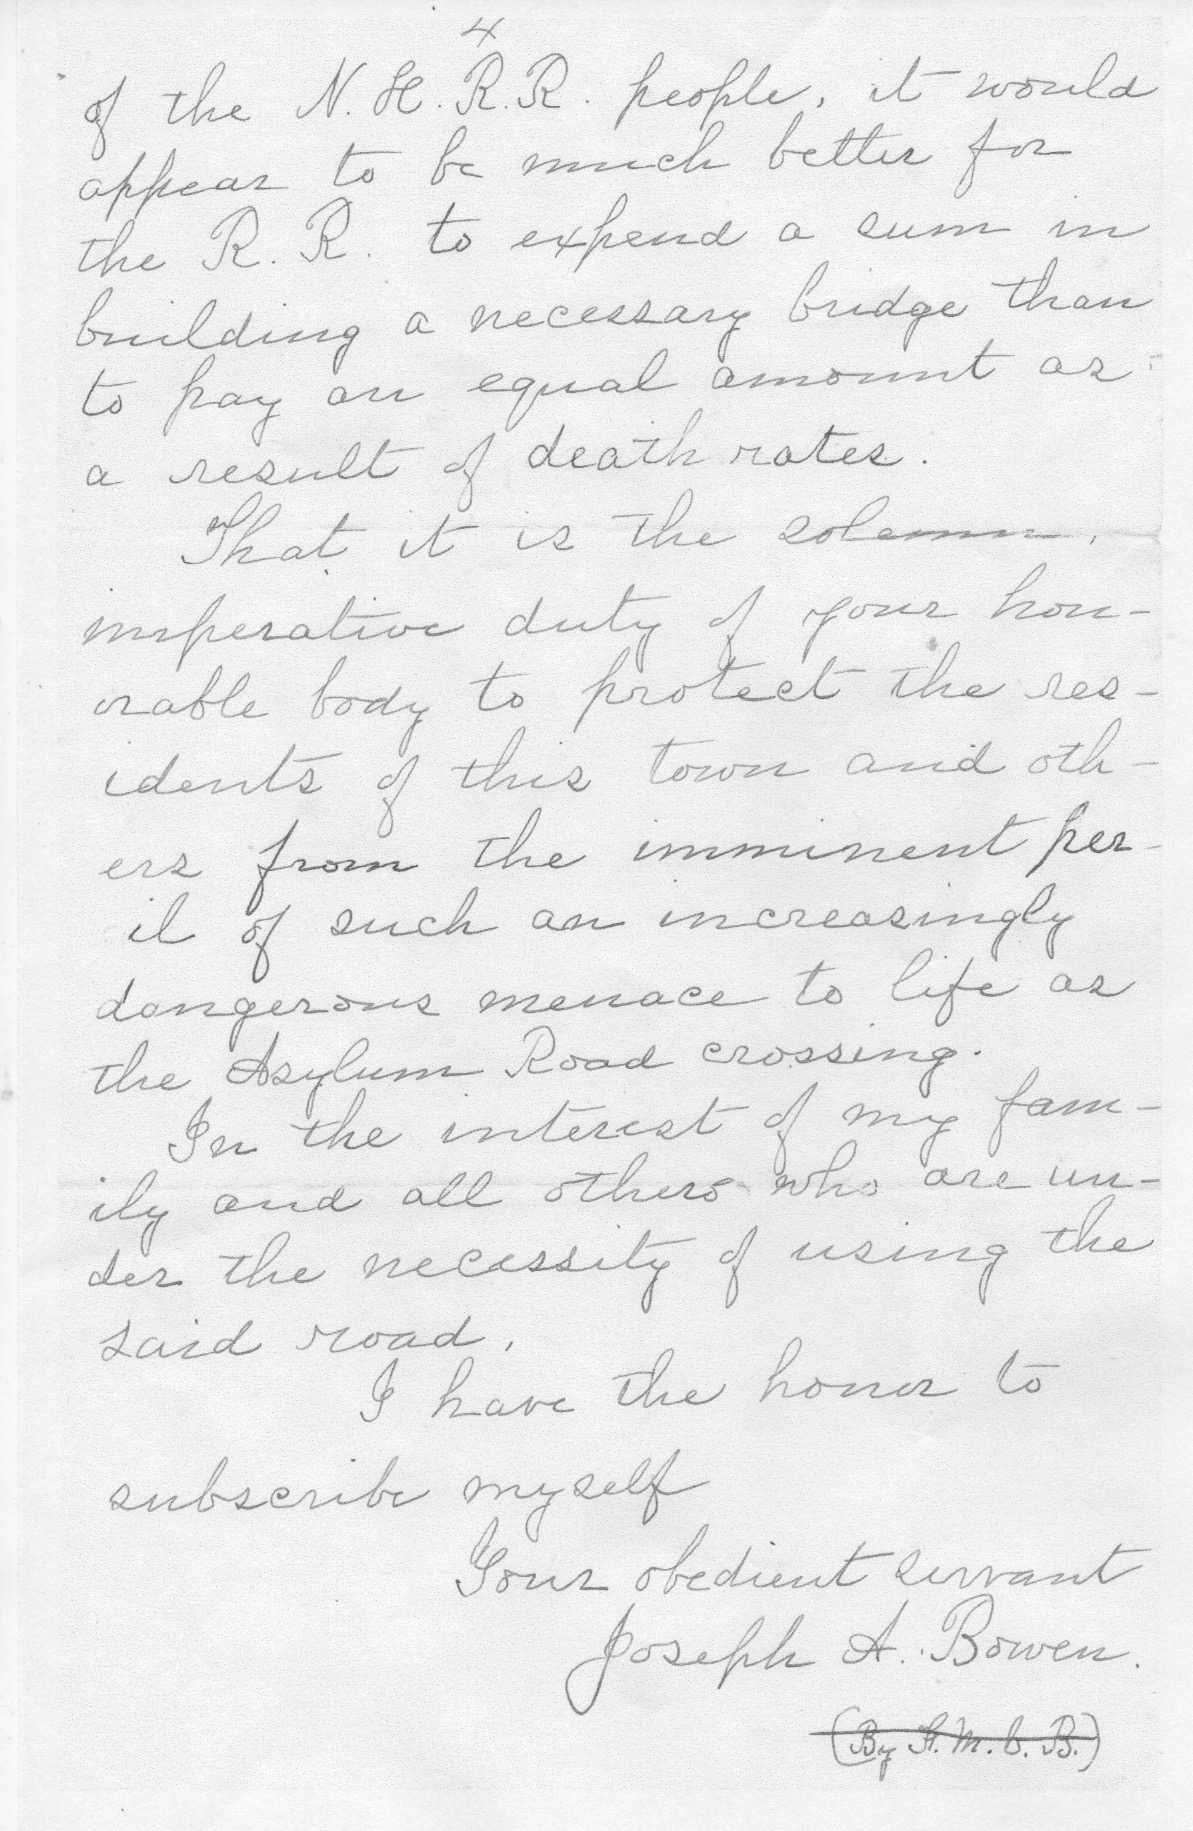 4
of the N. H. R. R. people, it would
appear to be much better for
the R. R. to expend a sum in
building a necessary bridge than
to pay an equal amount as
a result of death rates.
That it is the solemn,
imperative duty of your hon-
orable body to protect the res-
idents of this town and oth-
ers from the imminent per-
il of such an increasingly
dangerous menace to life as
the Asylum Road crossing.
In the interest of my fam-
ily and all others who are un-
der the necessity of using the
said road,
I have the honor to
subscribe myself
Your obedient servant
Joseph A. Bowen.
(By H. M. C. B.)